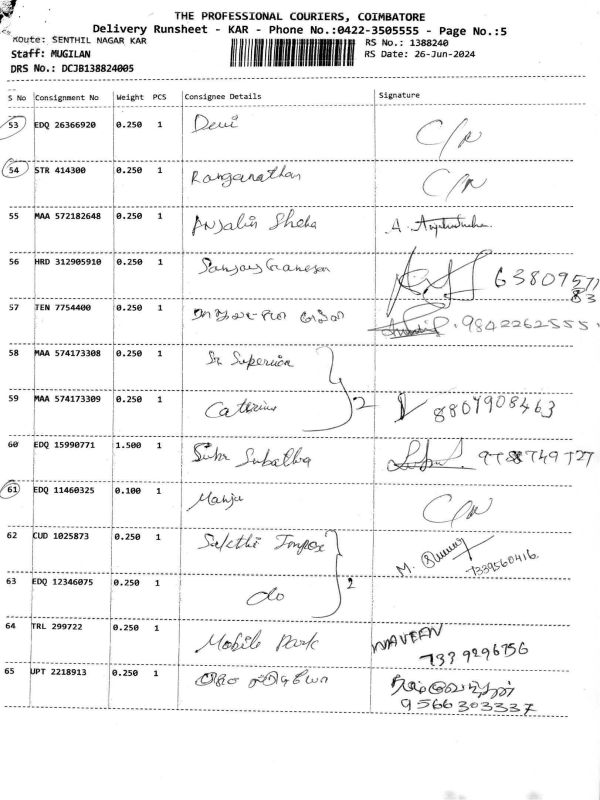 THE PROFESSIONAL COURIERS, COIMBATORE
Delivery Runsheet - KAR - Phone No.:0422-3505555 - Page No.:5
Route: SENTHIL NAGAR KAR RS No.: 1388240
Staff: MUGILAN RS Date: 26-Jun-2024
DRS No.: DCJB138824005
S No Consignment No Weight PCS Consignee Details Signature
53 EDQ 26366920 0.250 1 Devi
54 STR 414300 0.250 1 Ranganathan
55 MAA 572182648 0.250 1 Anjalin Sheha
56 HRD 312905910 0.250 1 Sanjay Ganesan 6380957783
57 TEN 7754400 0.250 1 9842262555
58 MAA 574173308 0.250 1 Sr Superior
59 MAA 574173309 0.250 1 2 8807908463
60 EDQ 15990771 1.500 1 Subathra
61 EDQ 11460325 0.100 1 Manju
62 CUD 1025873 0.250 1 Sakthi Impex M. 7339560416
63 EDQ 12346075 0.250 1 do 2
64 TRL 299722 0.250 1 Mobile Park NAVEEN
7339296756
65 UPT 2218913 0.250 1
9566303337